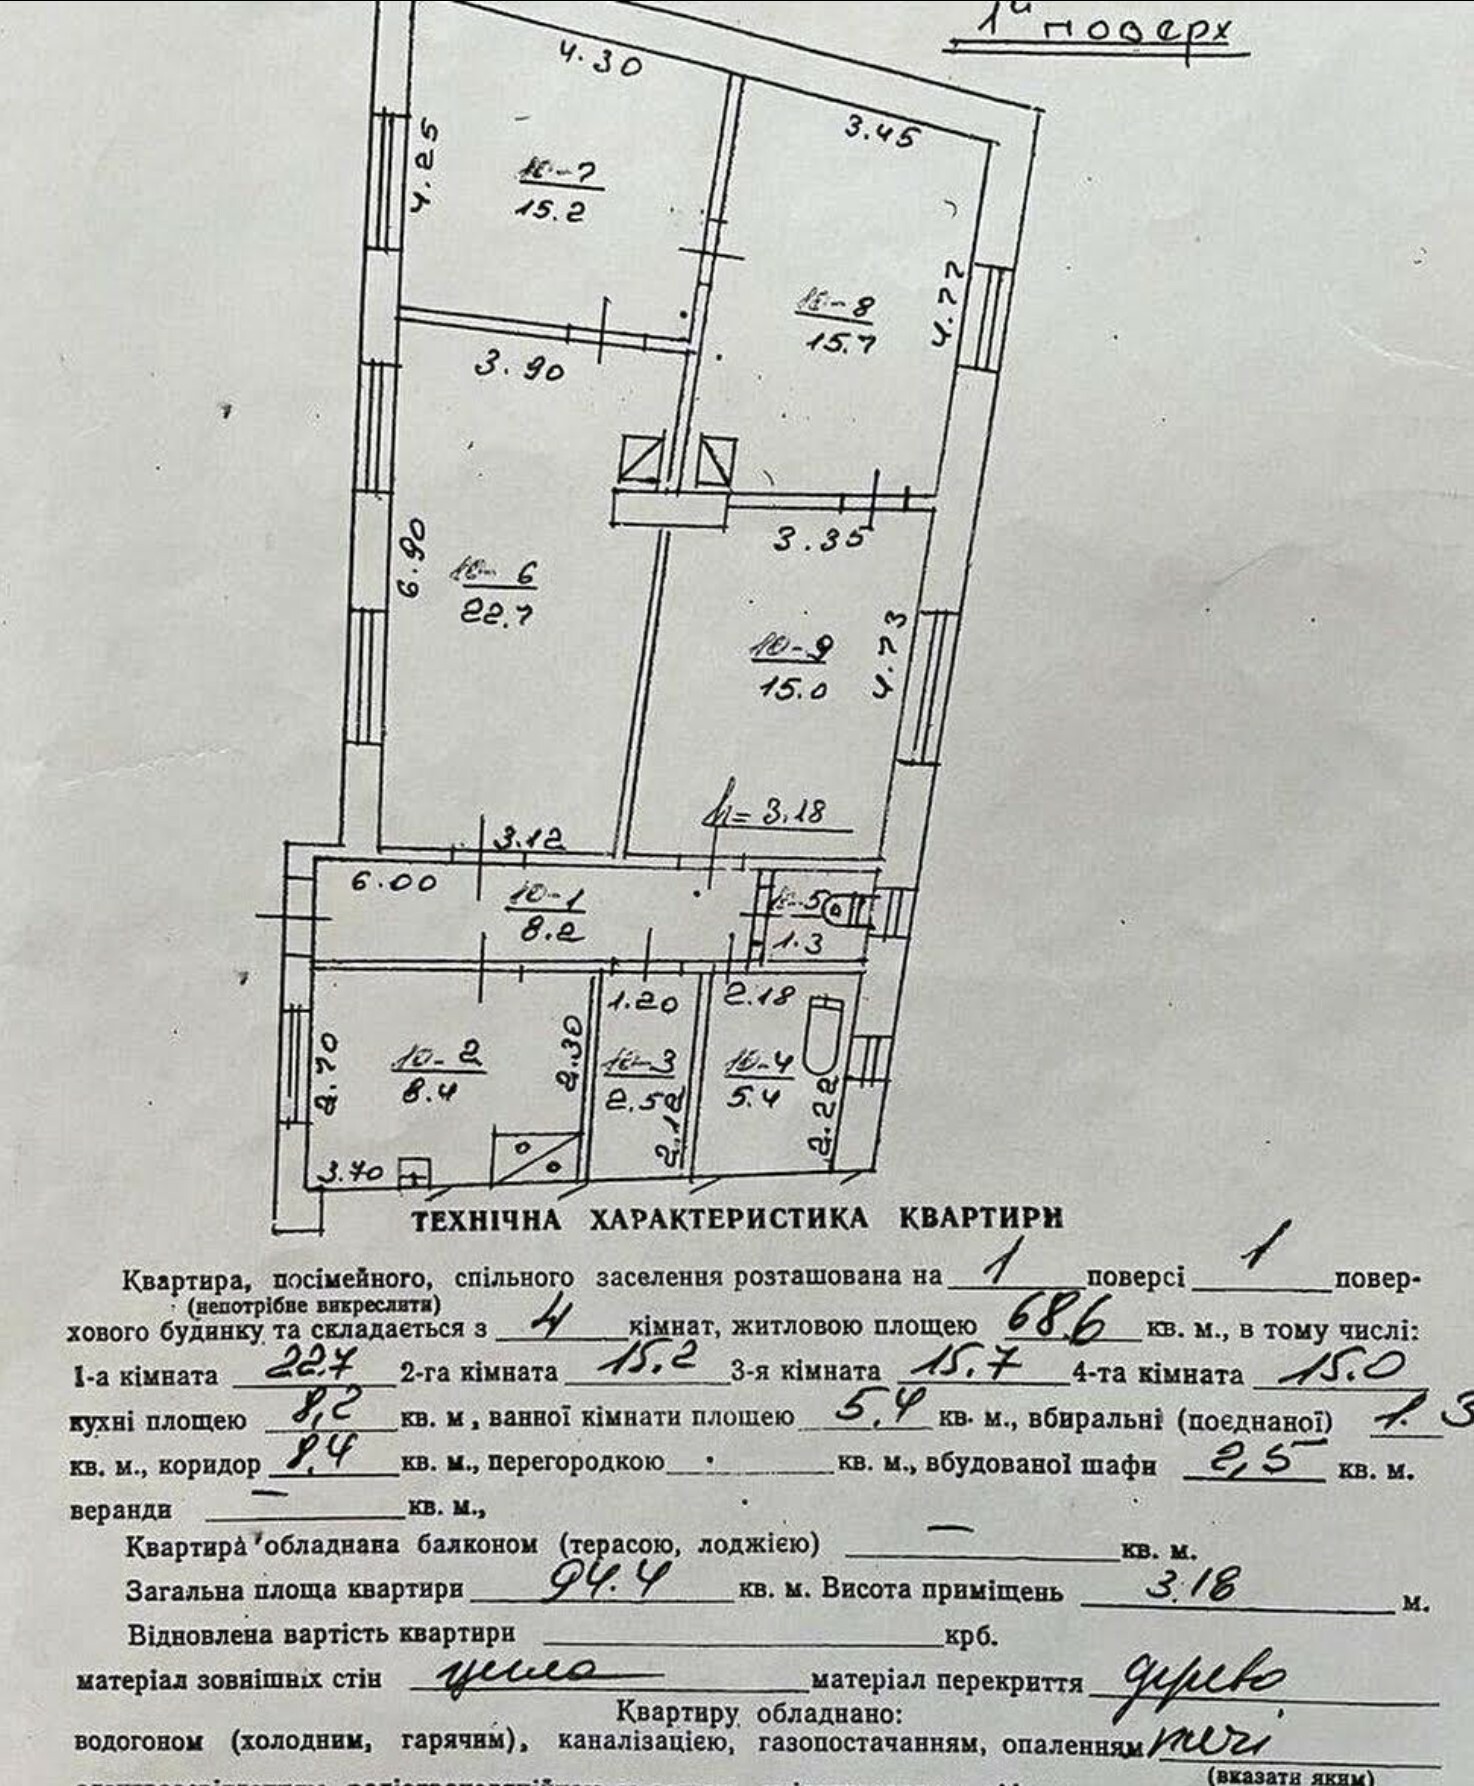 1й поверх
4.30
3.45
4.25
10-7
15.2
4.77
10-8
15.7
3.90
3.35
6.90
10-6
22.7
4.73
10-9
15.0
h=3.18
3.12
6.00
10-1
8.2
10-5
1.3
1.20
2.18
2.70
10-2
8.4
2.30
10-3
2.52
2.12
10-4
5.4
2.22
3.70
ТЕХНІЧНА ХАРАКТЕРИСТИКА КВАРТИРИ
Квартира, посімейного, спільного заселення розташована на 1 поверсі 1 повер-
(непотрібне викреслити)
хового будинку та складається з 4 кімнат, житловою площею 68.6 кв. м., в тому числі:
I-а кімната 22.7 2-га кімната 15.2 3-я кімната 15.7 4-та кімната 15.0
кухні площею 8,2 кв. м, ванної кімнати площею 5,4 кв. м., вбиральні (поєднаної) 1.3
кв. м., коридор 8,4 кв. м., перегородкою кв. м., вбудованої шафи 2,5 кв. м.
веранди — кв. м.,
Квартира обладнана балконом (терасою, лоджією) — кв. м.
Загальна площа квартири 94.4 кв. м. Висота приміщень 3.18 м.
Відновлена вартість квартири крб.
матеріал зовнішніх стін цегла матеріал перекриття дерево
Квартиру обладнано:
водогоном (холодним, гарячим), каналізацією, газопостачанням, опаленням печі
(вказати яким)